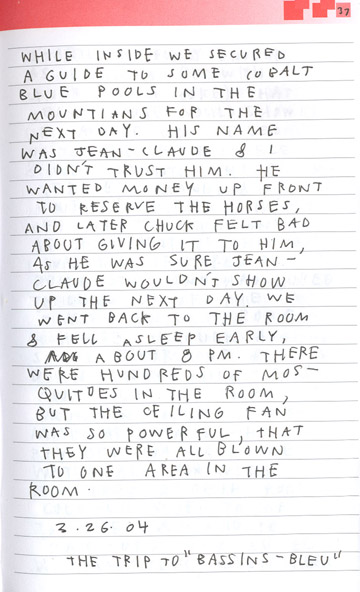 37
WHILE INSIDE WE SECURED
A GUIDE TO SOME COBALT
BLUE POOLS IN THE
MOUNTIANS FOR THE
NEXT DAY. HIS NAME
WAS JEAN-CLAUDE & I
DIDN'T TRUST HIM. HE
WANTED MONEY UP FRONT
TO RESERVE THE HORSES,
AND LATER CHUCK FELT BAD
ABOUT GIVING IT TO HIM,
AS HE WAS SURE JEAN-
CLAUDE WOULDN'T SHOW
UP THE NEXT DAY. WE
WENT BACK TO THE ROOM
& FELL ASLEEP EARLY,
ABOUT 8 PM. THERE
WERE HUNDREDS OF MOS-
QUITOES IN THE ROOM,
BUT THE CEILING FAN
WAS SO POWERFUL, THAT
THEY WERE ALL BLOWN
TO ONE AREA IN THE
ROOM.
3.26.04
THE TRIP TO "BASSINS-BLEU"